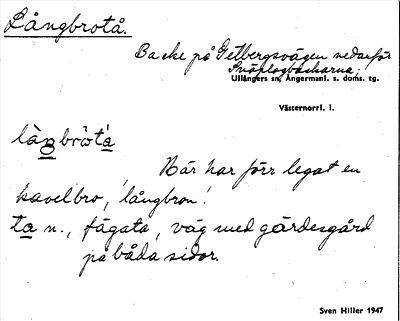 Långbrotå.
Backe på Getbergsvägen nedanför
Snöplogbackarna.
Ullångers sn, Ångermanl. s. doms. tg.
Västernorrl. l.
Här har förr legat en
kavelbro, 'långbron'.
ta n., fägata, väg med gärdesgård
på båda sidor.
Sven Hiller 1947